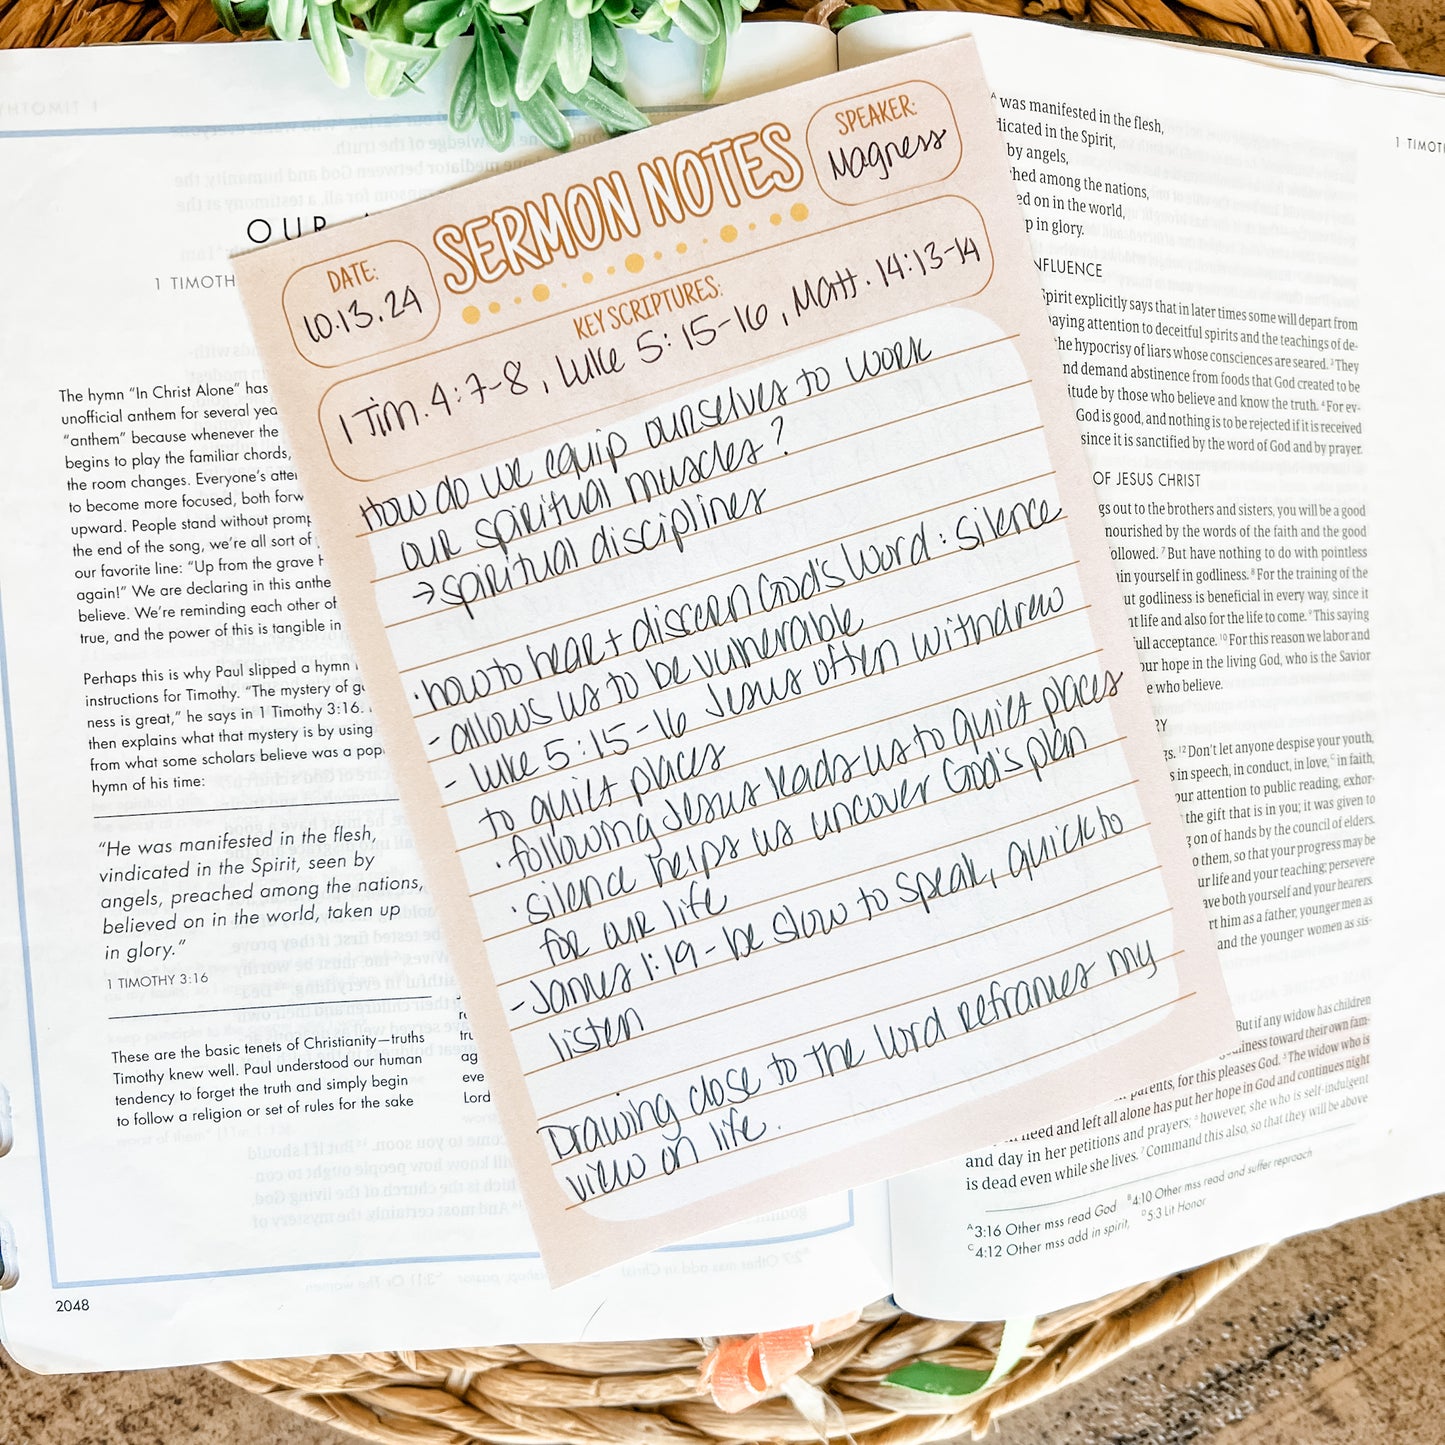 1 TIMOTHY
OUR
1 TIMOTH
The hymn “In Christ Alone” has
unofficial anthem for several yea
“anthem” because whenever the
begins to play the familiar chords,
the room changes. Everyone’s atte
to become more focused, both forw
upward. People stand without promp
the end of the song, we’re all sort of
our favorite line: “Up from the grave H
again!” We are declaring in this anthe
believe. We’re reminding each other of
true, and the power of this is tangible in
Perhaps this is why Paul slipped a hymn
instructions for Timothy. “The mystery of go
ness is great,” he says in 1 Timothy 3:16.
then explains what that mystery is by using
from what some scholars believe was a pop
hymn of his time:
“He was manifested in the flesh,
vindicated in the Spirit, seen by
angels, preached among the nations,
believed on in the world, taken up
in glory.”
1 TIMOTHY 3:16
These are the basic tenets of Christianity—truths
Timothy knew well. Paul understood our human
tendency to forget the truth and simply begin
to follow a religion or set of rules for the sake
tru
ag
eve
Lord
2048
SERMON NOTES
DATE:
10.13.24
SPEAKER:
Magness
KEY SCRIPTURES:
1 Tim. 4:7-8, Luke 5:15-16, Matt. 14:13-14
How do we equip ourselves to work
our spiritual muscles?
→ spiritual disciplines
· how to hear + discern God's Word: silence
- allows us to be vulnerable
- Luke 5:15-16 Jesus often withdrew
to quiet places
· following Jesus leads us to quiet places
· silence helps us uncover God's plan
for our life
- James 1:19 - be slow to speak, quick to
listen
Drawing close to the Lord reframes my
view on life.
1 TIMOT
was manifested in the flesh,
dicated in the Spirit,
by angels,
hed among the nations,
ed on in the world,
p in glory.
NFLUENCE
Spirit explicitly says that in later times some will depart from
paying attention to deceitful spirits and the teachings of de-
the hypocrisy of liars whose consciences are seared. ³They
nd demand abstinence from foods that God created to be
itude by those who believe and know the truth. ⁴For ev-
God is good, and nothing is to be rejected if it is received
since it is sanctified by the word of God and by prayer.
OF JESUS CHRIST
gs out to the brothers and sisters, you will be a good
nourished by the words of the faith and the good
ollowed. ⁷But have nothing to do with pointless
in yourself in godliness. ⁸For the training of the
ut godliness is beneficial in every way, since it
nt life and also for the life to come. ⁹This saying
ull acceptance. ¹⁰For this reason we labor and
our hope in the living God, who is the Savior
e who believe.
RY
gs. ¹²Don't let anyone despise your youth,
s in speech, in conduct, in love, in faith,
our attention to public reading, exhor-
the gift that is in you; it was given to
g on of hands by the council of elders.
o them, so that your progress may be
ur life and your teaching; persevere
ave both yourself and your hearers.
rt him as a father, younger men as
and the younger women as sis-
But if any widow has children
dliness toward their own fam-
parents, for this pleases God. ⁵The widow who is
need and left all alone has put her hope in God and continues night
and day in her petitions and prayers; ⁶however, she who is self-indulgent
is dead even while she lives. ⁷Command this also, so that they will be above
ᴬ3:16 Other mss read God ᴮ4:10 Other mss read and suffer reproach
ᶜ4:12 Other mss add in spirit, ᴰ5:3 Lit Honor